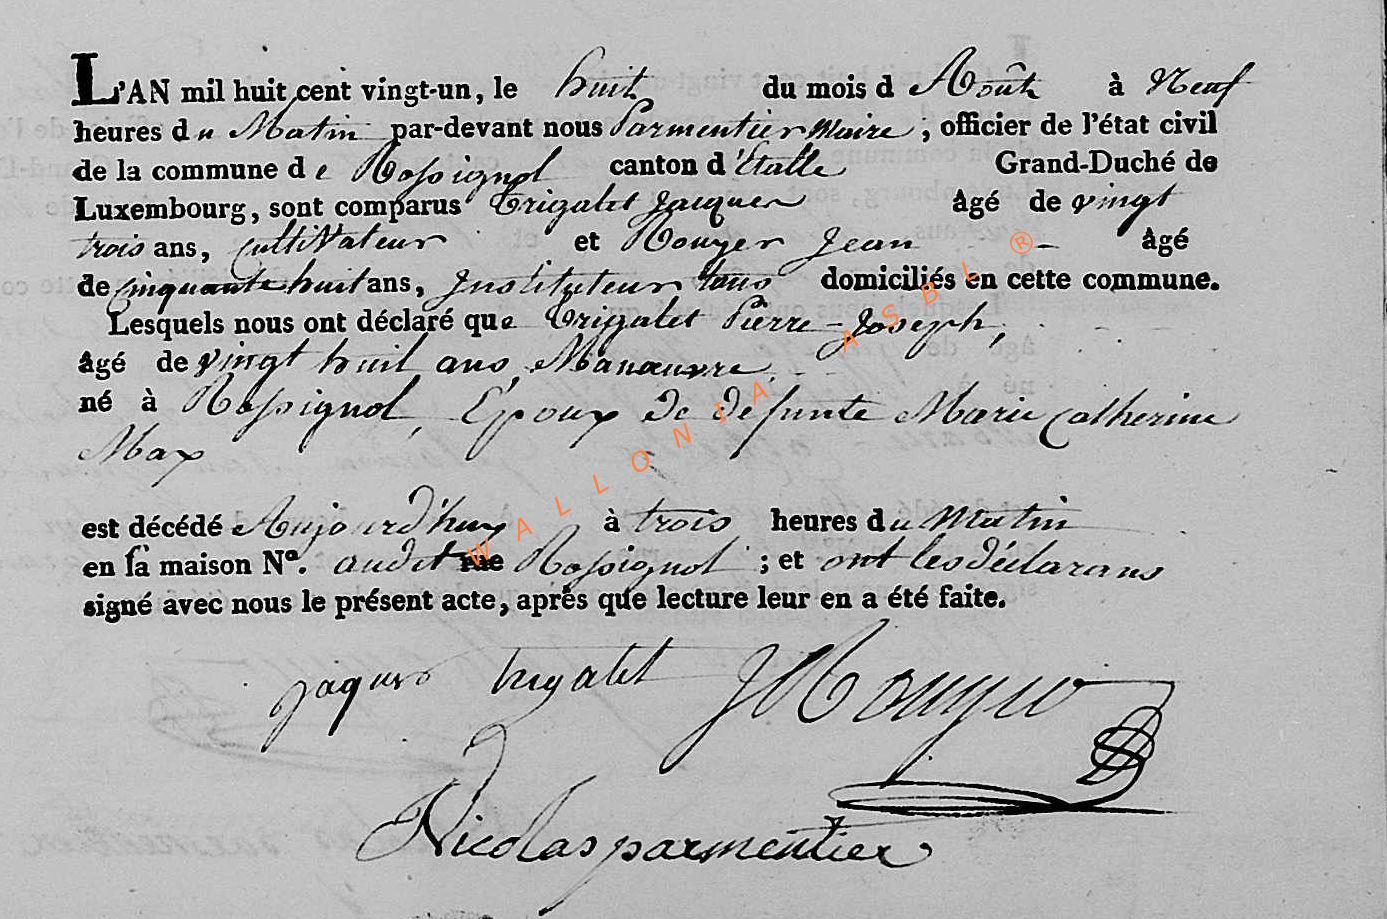 L'AN mil huit cent vingt-un, le huit du mois d Août à Neuf
heures du Matin par-devant nous Parmentier Maire, officier de l'état civil
de la commune de Rossignol canton d'Etalle Grand-Duché de
Luxembourg, sont comparus Trigalet Jacques âgé de vingt
trois ans, Cultivateur et Rouyer Jean âgé
de Cinquante huit ans, Instituteur tous domiciliés en cette commune.
Lesquels nous ont déclaré que Trigalet Pierre-Joseph,
âgé de vingt huit ans, Manœuvre
né à Rossignol, Epoux de défunte Marie Catherine
Max
est décédé Aujourd'huy à trois heures du Matin
en sa maison N°. audit rue Rossignol ; et ont les déclarans
signé avec nous le présent acte, après que lecture leur en a été faite.
jaques trigalet JRouyer
Nicolas parmentier
WALLONIA ASBL ®